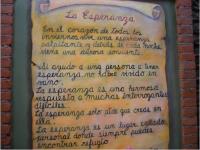 La Esperanza
En el corazón de todos los
inviernos vive una esperanza
palpitante y detrás de cada noche
viene una aurora sonriente
Si ayudo a una persona a tener
esperanza no habré vivido en
vano.
La esperanza es una hermosa
respuesta a muchas interrogantes
difíciles.
La esperanza es solo algo que creas en
ella.
La esperanza es un lugar
personal donde siempre puedes
encontrar refugio